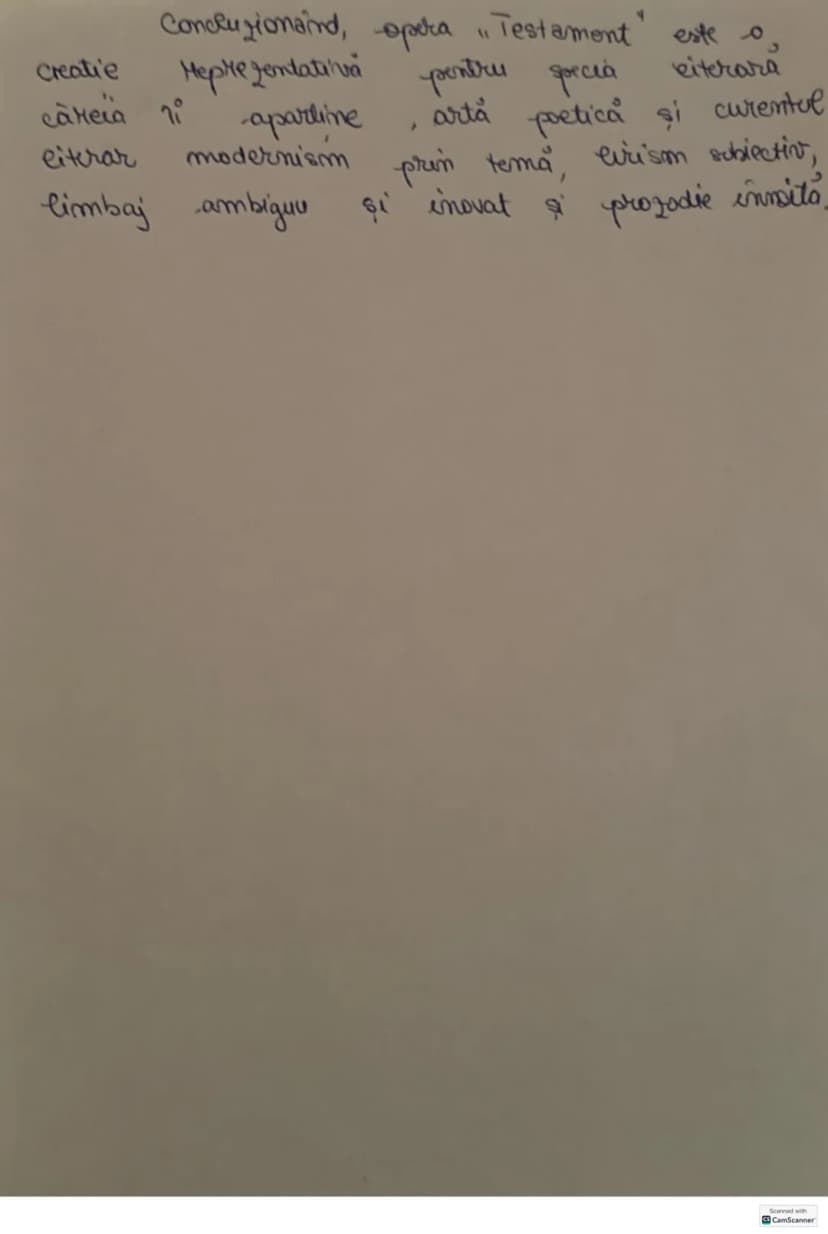 Concluzionând, opera „Testament" este o
creație reprezentativă pentru specia literară
căreia îi aparține, artă poetică și curentul
literar modernism prin temă, lirism subiectiv,
limbaj ambiguu și inovat și prozodie înnoită.
Scanned with
CS CamScanner